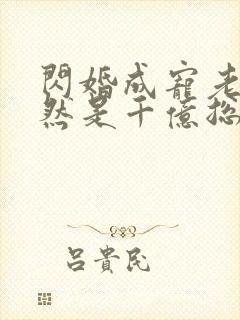 閃婚成寵老
然是千億總
呂貴民